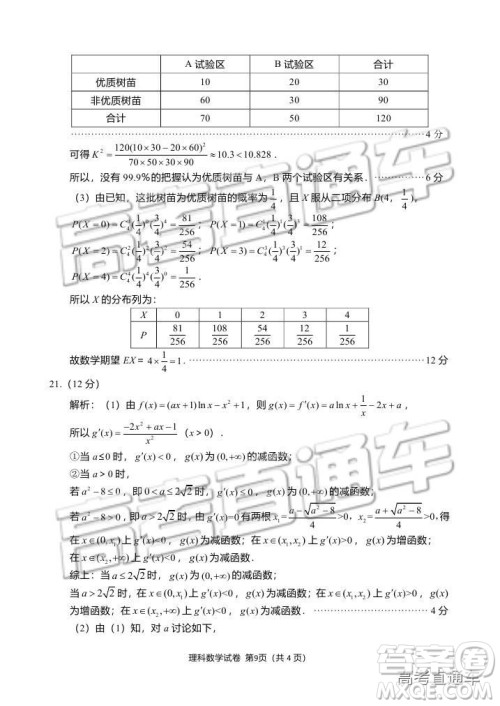 A 试验区 B 试验区 合计
优质树苗 10 20 30
非优质树苗 60 30 90
合计 70 50 120
……4 分
可得 K² = 120(10×30−20×60)² / (70×50×30×90) ≈ 10.3 < 10.828．
所以，没有 99.9%的把握认为优质树苗与 A，B 两个试验区有关系．……6 分
（3）由已知，这批树苗为优质树苗的概率为 1/4，且 X 服从二项分布 B(4，1/4)，
P(X=0)=C₄⁰(1/4)⁰(3/4)⁴=81/256；P(X=1)=C₄¹(1/4)¹(3/4)³=108/256；
P(X=2)=C₄²(1/4)²(3/4)²=54/256；P(X=3)=C₄³(1/4)³(3/4)¹=12/256；
P(X=4)=C₄⁴(1/4)⁴(3/4)⁰=1/256．
所以 X 的分布列为：
X 0 1 2 3 4
P 81/256 108/256 54/256 12/256 1/256
故数学期望 EX=4×1/4=1．……12 分
21．（12 分）
解析：（1）由 f(x)=(ax+1)ln x−x²+1，则 g(x)=f′(x)=a ln x+1/x−2x+a，
所以 g′(x)=(−2x²+ax−1)/x²（x＞0）．
①当 a≤0 时，g′(x)<0，g(x) 为 (0,+∞) 的减函数；
②当 a＞0 时，
若 a²−8≤0，即 0<a≤2√2 时，g′(x)≤0，g(x) 为 (0,+∞) 的减函数；
若 a²−8>0，即 a>2√2 时，由 g′(x)=0 有两根 x₁=(a−√(a²−8))/4>0，x₂=(a+√(a²−8))/4>0，得
在 x∈(0,x₁) 上 g′(x)<0，g(x) 为减函数；在 x∈(x₁,x₂) 上 g′(x)>0，g(x) 为增函数；
在 x∈(x₂,+∞) 上 g′(x)<0，g(x) 为减函数．
综上：当 a≤2√2 时，g(x) 为 (0,+∞) 的减函数；
当 a>2√2 时，在 x∈(0,x₁) 上 g′(x)<0，g(x) 为减函数；在 x∈(x₁,x₂) 上 g′(x)>0，g(x)
为增函数；在 x∈(x₂,+∞) 上 g′(x)<0，g(x) 为减函数．……4 分
（2）由（1）知，对 a 讨论如下，
理科数学试卷 第9页（共 4 页）
高考直通车
高考直通车
高考直通车
答案圈
MXQE.COM